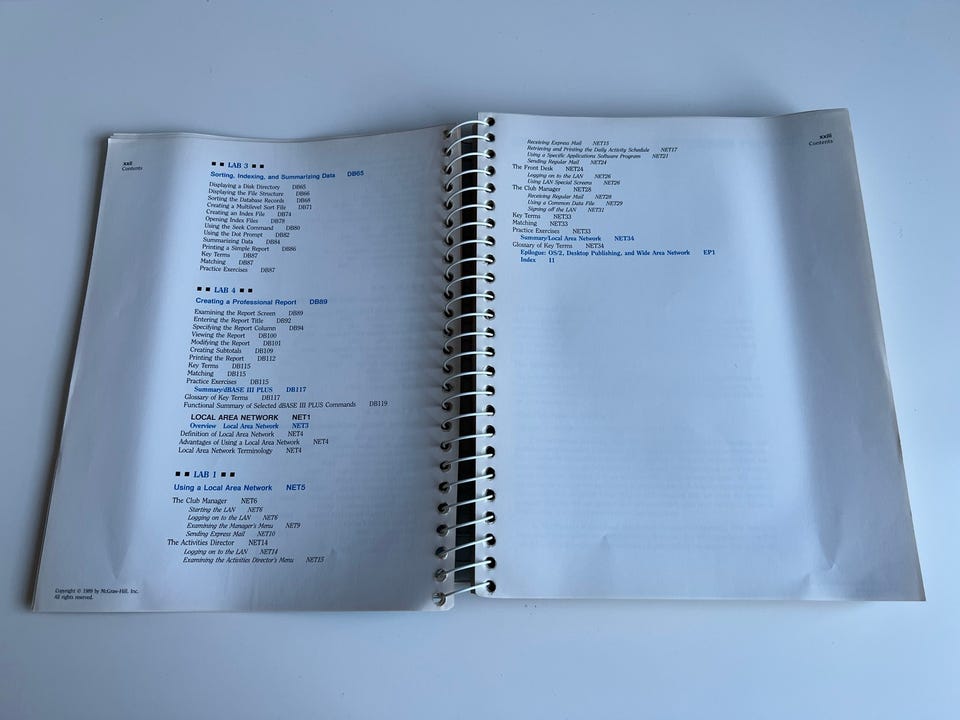 xxii
Contents
■ ■ LAB 3 ■ ■
Sorting, Indexing, and Summarizing Data DB65
Displaying a Disk Directory DB65
Displaying the File Structure DB66
Sorting the Database Records DB68
Creating a Multilevel Sort File DB71
Creating an Index File DB74
Opening Index Files DB78
Using the Seek Command DB80
Using the Dot Prompt DB82
Summarizing Data DB84
Printing a Simple Report DB86
Key Terms DB87
Matching DB87
Practice Exercises DB87
■ ■ LAB 4 ■ ■
Creating a Professional Report DB89
Examining the Report Screen DB89
Entering the Report Title DB92
Specifying the Report Column DB94
Viewing the Report DB100
Modifying the Report DB101
Creating Subtotals DB109
Printing the Report DB112
Key Terms DB115
Matching DB115
Practice Exercises DB115
Summary/dBASE III PLUS DB117
Glossary of Key Terms DB117
Functional Summary of Selected dBASE III PLUS Commands DB119
LOCAL AREA NETWORK NET1
Overview Local Area Network NET3
Definition of Local Area Network NET4
Advantages of Using a Local Area Network NET4
Local Area Network Terminology NET4
■ ■ LAB 1 ■ ■
Using a Local Area Network NET5
The Club Manager NET6
Starting the LAN NET6
Logging on to the LAN NET6
Examining the Manager's Menu NET9
Sending Express Mail NET10
The Activities Director NET14
Logging on to the LAN NET14
Examining the Activities Director's Menu NET15
Copyright © 1989 by McGraw-Hill, Inc.
All rights reserved.
xxiii
Contents
Receiving Express Mail NET15
Retrieving and Printing the Daily Activity Schedule NET17
Using a Specific Applications Software Program NET21
Sending Regular Mail NET24
The Front Desk NET24
Logging on to the LAN NET26
Using LAN Special Screens NET26
The Club Manager NET28
Receiving Regular Mail NET28
Using a Common Data File NET29
Signing off the LAN NET31
Key Terms NET33
Matching NET33
Practice Exercises NET33
Summary/Local Area Network NET34
Glossary of Key Terms NET34
Epilogue: OS/2, Desktop Publishing, and Wide Area Network EP1
Index I1